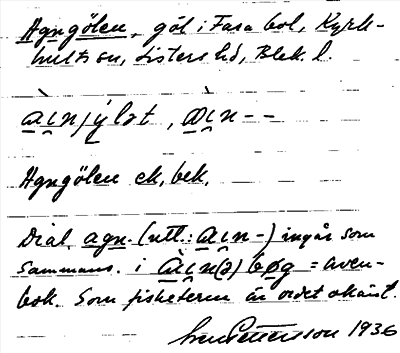 Agngölen, göl i Fasa bol, Kyrk-
hults sn, Listers hd, Blek. l.
àɩnjýlət, àɩn--
Agngölen ek, bek.
Dial. agn- (utt.: aɩn-) ingår som
sammans. i àɩn(ə)bøg = aven-
bok. Som fisketerm är ordet okänt.
Pettersson 1936